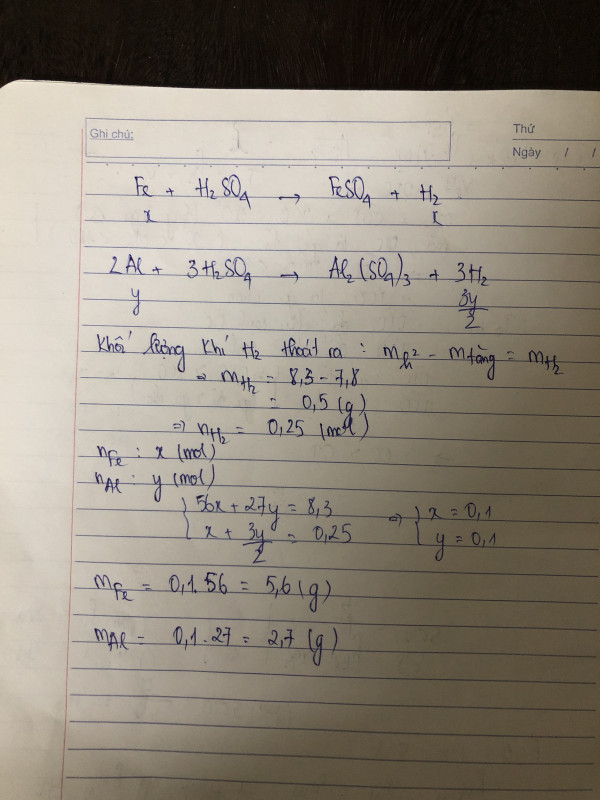 Ghi chú:
Thứ
Ngày / /
Fe + H₂SO₄ → FeSO₄ + H₂
x x
2Al + 3H₂SO₄ → Al₂(SO₄)₃ + 3H₂
y 3y/2
Khối lượng khí H₂ thoát ra : m h² - m tăng = mH₂
⇒ mH₂ = 8,3 - 7,8
= 0,5 (g)
⇒ nH₂ = 0,25 (mol)
nFe : x (mol)
nAl : y (mol)
{ 56x + 27y = 8,3 ⇒ { x = 0,1
x + 3y/2 = 0,25 y = 0,1
mFe = 0,1.56 = 5,6 (g)
mAl = 0,1.27 = 2,7 (g)